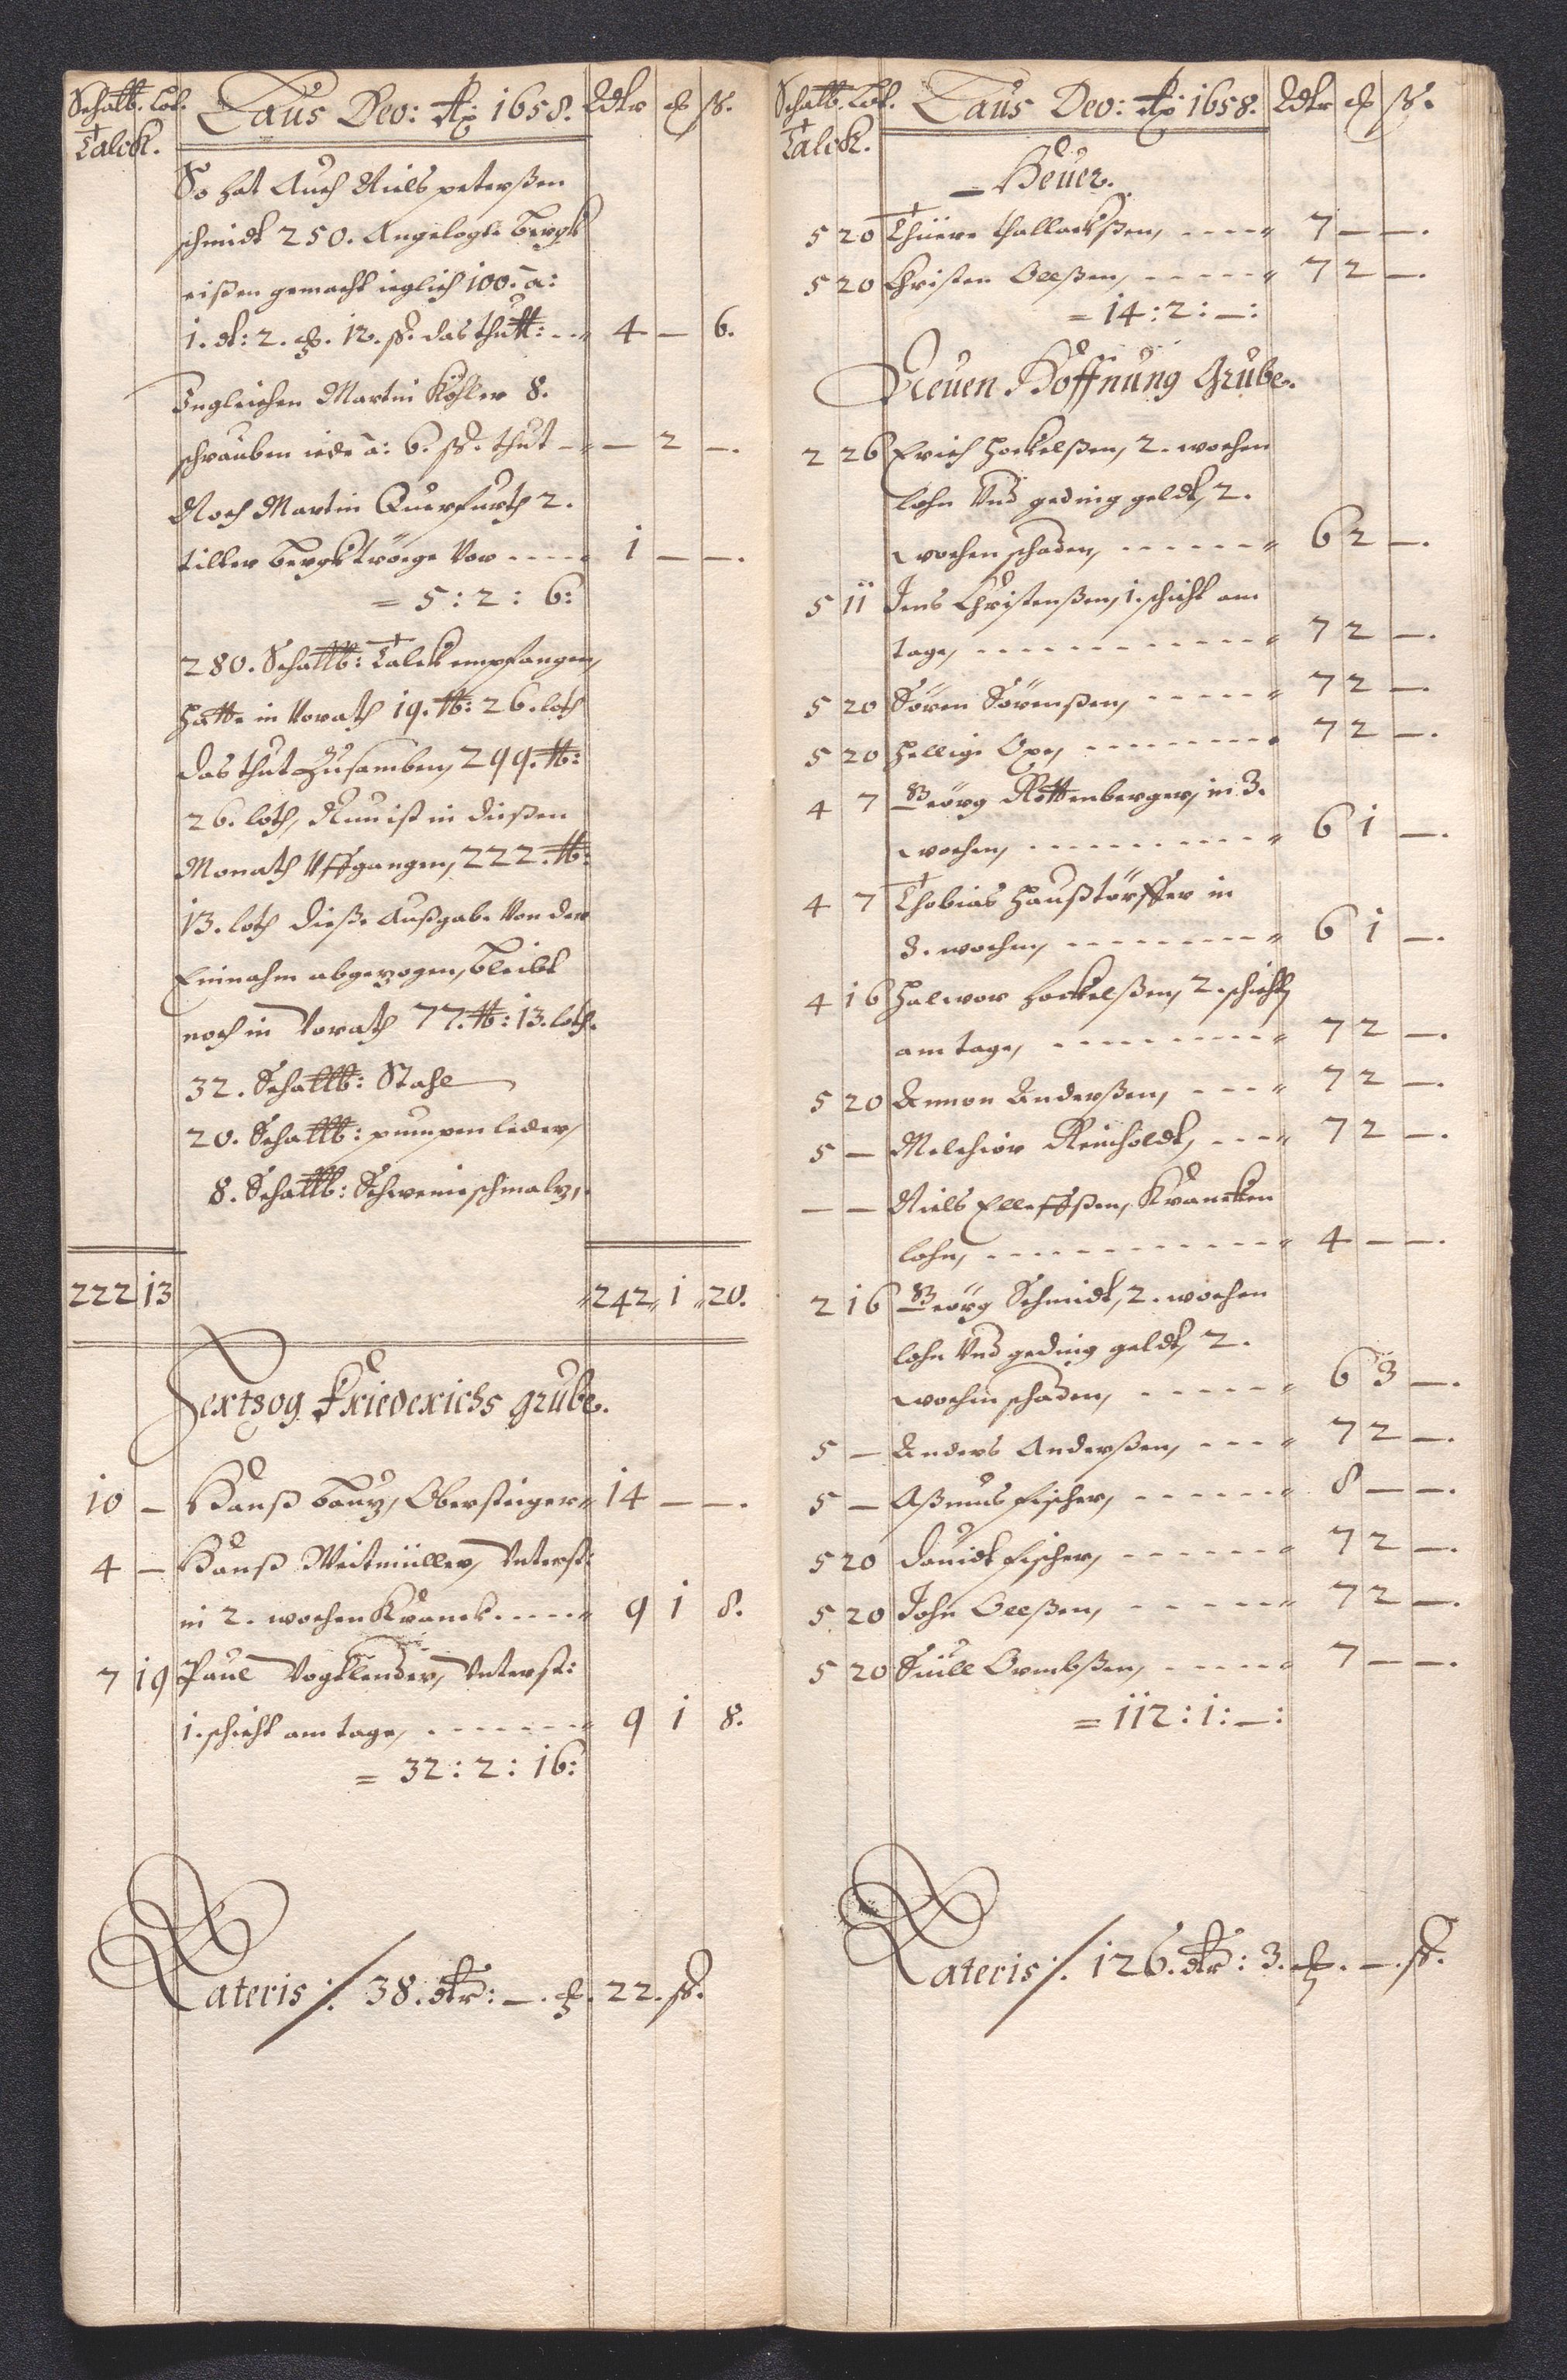 Schallb. Lot. Laus Deo: Ao: 1658. Rdtr ß.
Talck.
So hat Auch Niels peterßen
schmidt 250. Angelegte bergk
eißen gemacht ieglich 100. â:
1. dt: 2. . 12. ß. das thutt: 4 — 6.
Ingleichen Martin Köhler 8.
schrauben iede â: 6. ß. thut — 2 —.
Noch Martin Querfurth 2.
tiller bergktröege Vor 1 — —.
= 5 : 2 : 6:
280. Schallb: Talck empfangen,
hatte in Vorath 19. lb: 26. loth
das thut Zusamben, 299. lb:
26. loth, Nun ist in dießen
Monath Uffgangen, 222. lb:
13. loth dieße Außgabe Von der
Einnahm abgezogen, bleibt
noch in Vorath 77. lb: 13. loth.
32. Schallb: Stahl
20. Schallb: pumpen leder,
8. Schallb: Schweineschmaltz,
222 13 242 1 20.
Hertzog Friederichs grube.
10 — Hanß bautz, Obersteiger 14 — —.
4 — Hanß Weitmüller, Unterst:
in 2. wochen Kranck 9 1 8.
7 19 Paul Vogtlender, Unterst:
1. schicht am tage, 9 1 8.
= 32 : 2 : 16:
Lateris ⁒ 38. dtr: —. . 22. ß.
Schallb. Lot. Laus Deo: Ao: 1658. Rdtr ß.
Talck.
Heuer.
5 20 Thüere thallackßen, 7 — —.
5 20 Christen Oelßen, 7 2 —.
= 14 : 2 : — :
Neuen Hoffnung Grube.
2 26 Erich Hockelßen, 2. wochen
lohn Und geding geldt, 2.
wochen schaden, 6 2 —.
5 11 Jens Christenßen, 1. schicht am
tage, 7 2 —.
5 20 Sören Sörenßen, 7 2 —.
5 20 Hellige Oxe, 7 2 —.
4 7 Georg Rottenberger, in 3.
wochen, 6 1 —.
4 7 Thobias Haußtörffer in
3. wochen, 6 1 —.
4 16 Halwor Hockelßen, 2. schicht
am tage, 7 2 —.
5 20 Annon Anderßen, 7 2 —.
5 — Melchior Reinholdt, 7 2 —.
— — Niels Elleffßen, Krancken
lohn, 4 — —.
2 16 Georg Schmidt, 2. wochen
lohn Und geding geldt, 2.
wochen schaden, 6 3 —.
5 — Anders Anderßen, 7 2 —.
5 — Aßmus fischer, 8 — —.
5 20 Davidt fischer, 7 2 —.
5 20 John Oelßen, 7 2 —.
5 20 Siull Ormbßen, 7 — —.
= 112 : 1 : — :
Lateris ⁒ 126. dtr: 3. . —. ß.